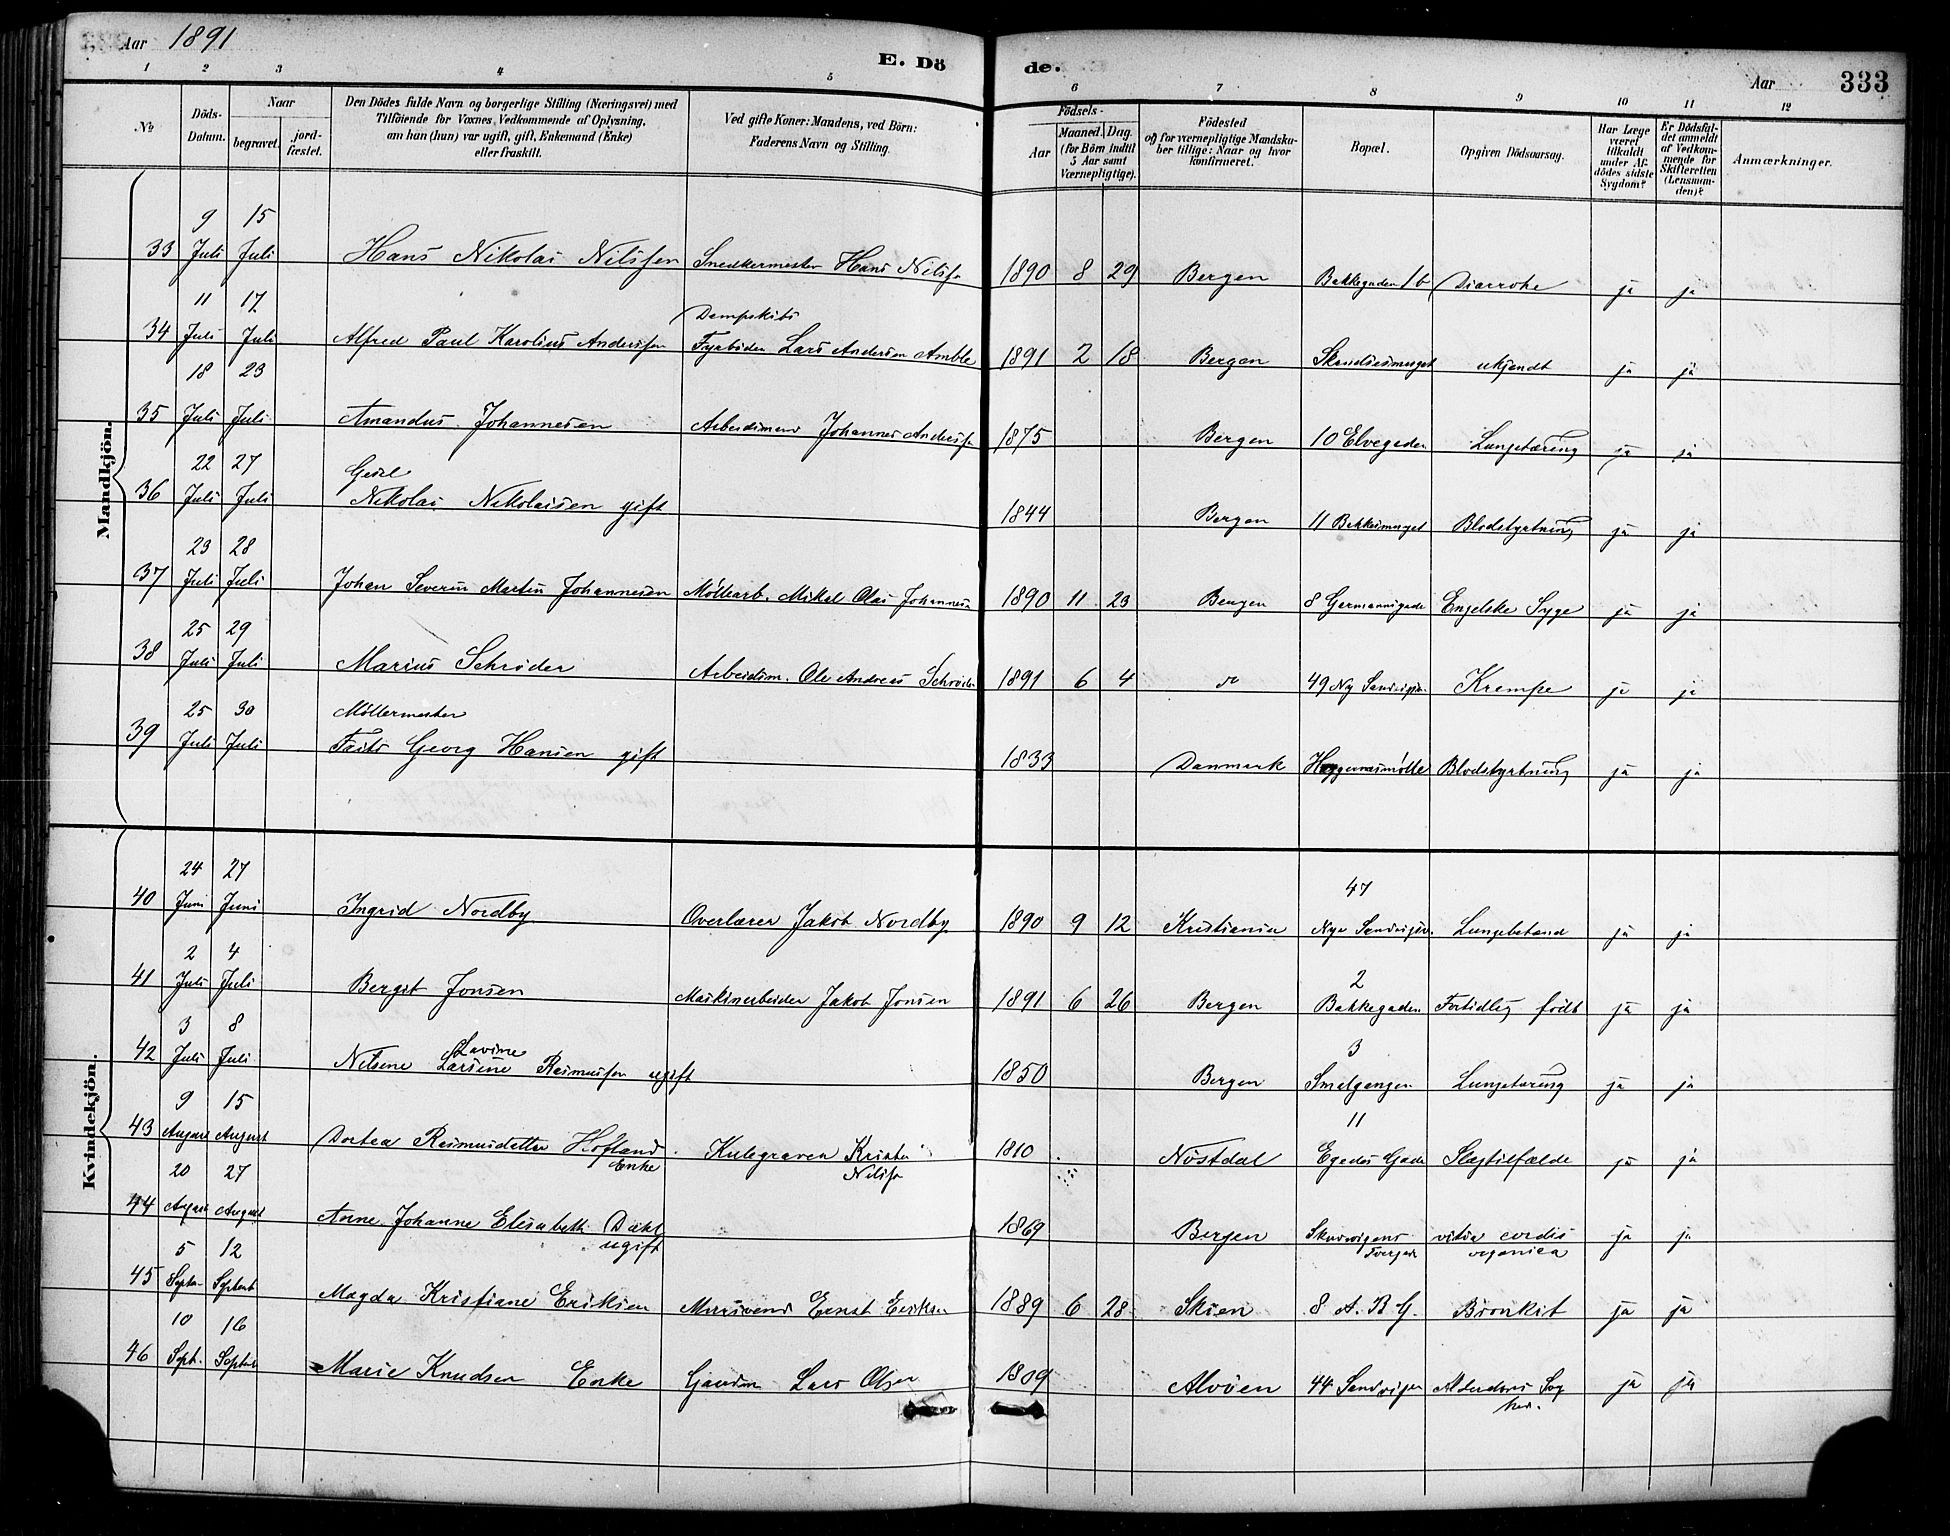 Aar 1891
E. Döde.
Aar 333
1 2 3 4 5 6 7 8 9 10 11 12
№
Döds-Datum.
Naar
begravet.
jordfæstet.
Den Dödes fulde Navn og borgerlige Stilling (Næringsvei) med
Tilföiende for Voxnes Vedkommende af Oplysning,
om han (hun) var ugift, gift, Enkemand (Enke)
eller fraskilt.
Ved gifte Koner: Mandens, ved Börn:
Faderens Navn og Stilling.
Födsels-
Aar
Maaned. Dag.
(for Börn indtil
5 Aar samt
Værnepligtige).
Födested
og for værnepligtige Mandska-
ber tillige: Naar og hvor
konfirmeret.
Bopæl.
Opgiven Dödsaarsag.
Har Læge
været
tilkaldt
under Af-
dödes sidste
Sygdom?
Er Dödsfal-
det anmeldt
af Vedkom-
mende for
Skifteretten
(Lensman-
den)?
Anmærkninger.
Mandkjön.
33 9 Juli 15 Juli Hans Nikolai Nilssen Snedkermester Hans Nilssen 1890 8 29 Bergen Bakkegaden 1b Diarrohe ja ja
34 11 Juli 17 Juli Alfred Paul Karolius Anderssen Dampskibs Fyrböder Lars Andersen Amble 1891 2 18 Bergen ukjendt ja ja
35 18 Juli 23 Juli Amandus Johannesen Arbeidsmand Johannes Anderssen 1875 Bergen 10 Elvegaden Lungetæring ja ja
36 22 Juli 27 Juli Nikolai Nikolaisen gift 1844 Bergen 11 Bakkesmuget Blodstyrtning ja ja
37 23 Juli 28 Juli Johan Severin Martin Johannesen Möllearb. Mikal Olai Johannesen 1890 11 23 Bergen 8 Engelske Syge ja ja
38 25 Juli 29 Juli Marius Schrøder Arbeidsm. Ole Andreas Schrøder 1891 6 4 do 49 Ny Sandvigsv. Krampe ja ja
39 25 Juli 30 Juli Möllermester Georg Hansen gift 1833 Danmark Blodstyrtning ja ja
Kvindekjön.
40 24 Juni 27 Juni Ingrid Nordby Overlærer Jakob Nordby 1890 9 12 Kristiania 47 Nye Sandvigsv. Lungebetænd ja ja
41 2 Juli 4 Juli Bergit Jonsen Maskinarbeider Jakob Jonsen 1891 6 26 Bergen 2 Bakkegaden Fortidlig födt ja ja
42 3 Juli 8 Juli Nilsene Lavine Larsine Rasmussen ugift 1850 Bergen 3 Smalgangen Lungetæring ja ja
43 9 August 15 August Dortea Rasmusdatter Hofland Enke Kulegraver Nilssen 1810 Nöstdal 11 Egedes Gade Slagtilfælde ja ja
44 20 August 27 August Anne Johanne Elisabeth Dahl ugift 1869 Bergen Sandvigens Tvergade vitia cordis organica ja ja
45 5 Septbr 12 Septemb Magda Kristiane Eriksen Mursvend Ernst Eriksen 1889 6 28 Skien 8 A. B. G. Bronkit ja ja
46 10 Sept. 16 Septemb Marie Knudsen Enke Lars Olsen 1809 Alvöen 44 Sandvigen Alderdoms Svaghed. ja ja